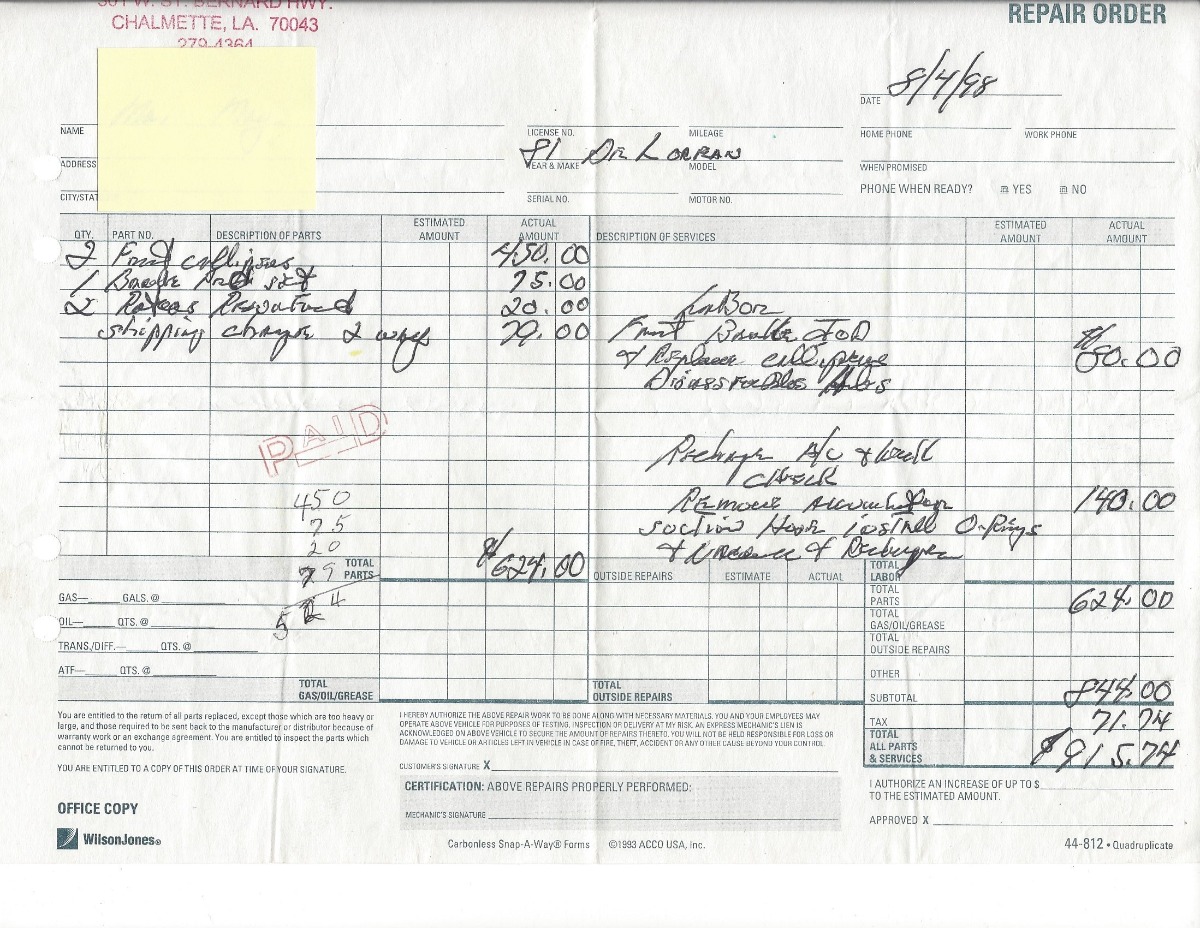 CHALMETTE, LA. 70043
279-4364
REPAIR ORDER
DATE 8/4/98
NAME
LICENSE NO.
MILEAGE
HOME PHONE
WORK PHONE
81 De Lorean
ADDRESS
YEAR & MAKE
MODEL
WHEN PROMISED
PHONE WHEN READY? YES NO
CITY/STAT
SERIAL NO.
MOTOR NO.
QTY. PART NO. DESCRIPTION OF PARTS ESTIMATED AMOUNT ACTUAL AMOUNT DESCRIPTION OF SERVICES ESTIMATED AMOUNT ACTUAL AMOUNT
2 Front callipers 450.00
1 Brake Pad set 75.00
2 Rotors 20.00
shipping charge 2 ways 79.00
Labor
Front Brake Job
& Replace callipers $80.00
PAID
Recharge A/C & Leak
CHECK
Remove 140.00
suction Hose install O-Rings
&
450
75
20
79
524
TOTAL PARTS $624.00
OUTSIDE REPAIRS ESTIMATE ACTUAL
TOTAL LABOR
GAS— GALS. @
TOTAL PARTS 624.00
OIL— QTS. @
TOTAL GAS/OIL/GREASE
TRANS./DIFF.— QTS. @
TOTAL OUTSIDE REPAIRS
ATF— QTS. @
OTHER
TOTAL GAS/OIL/GREASE
TOTAL OUTSIDE REPAIRS
SUBTOTAL 844.00
TAX 71.74
TOTAL ALL PARTS & SERVICES $915.74
You are entitled to the return of all parts replaced, except those which are too heavy or
large, and those required to be sent back to the manufacturer or distributor because of
warranty work or an exchange agreement. You are entitled to inspect the parts which
cannot be returned to you.
YOU ARE ENTITLED TO A COPY OF THIS ORDER AT TIME OF YOUR SIGNATURE.
I HEREBY AUTHORIZE THE ABOVE REPAIR WORK TO BE DONE ALONG WITH NECESSARY MATERIALS. YOU AND YOUR EMPLOYEES MAY
OPERATE ABOVE VEHICLE FOR PURPOSES OF TESTING, INSPECTION OR DELIVERY AT MY RISK. AN EXPRESS MECHANIC'S LIEN IS
ACKNOWLEDGED ON ABOVE VEHICLE TO SECURE THE AMOUNT OF REPAIRS THERETO. YOU WILL NOT BE HELD RESPONSIBLE FOR LOSS OR
DAMAGE TO VEHICLE OR ARTICLES LEFT IN VEHICLE IN CASE OF FIRE, THEFT, ACCIDENT OR ANY OTHER CAUSE BEYOND YOUR CONTROL.
CUSTOMER'S SIGNATURE X
CERTIFICATION: ABOVE REPAIRS PROPERLY PERFORMED:
MECHANIC'S SIGNATURE
I AUTHORIZE AN INCREASE OF UP TO $
TO THE ESTIMATED AMOUNT.
APPROVED X
OFFICE COPY
WilsonJones®
Carbonless Snap-A-Way® Forms ©1993 ACCO USA, Inc.
44-812 • Quadruplicate